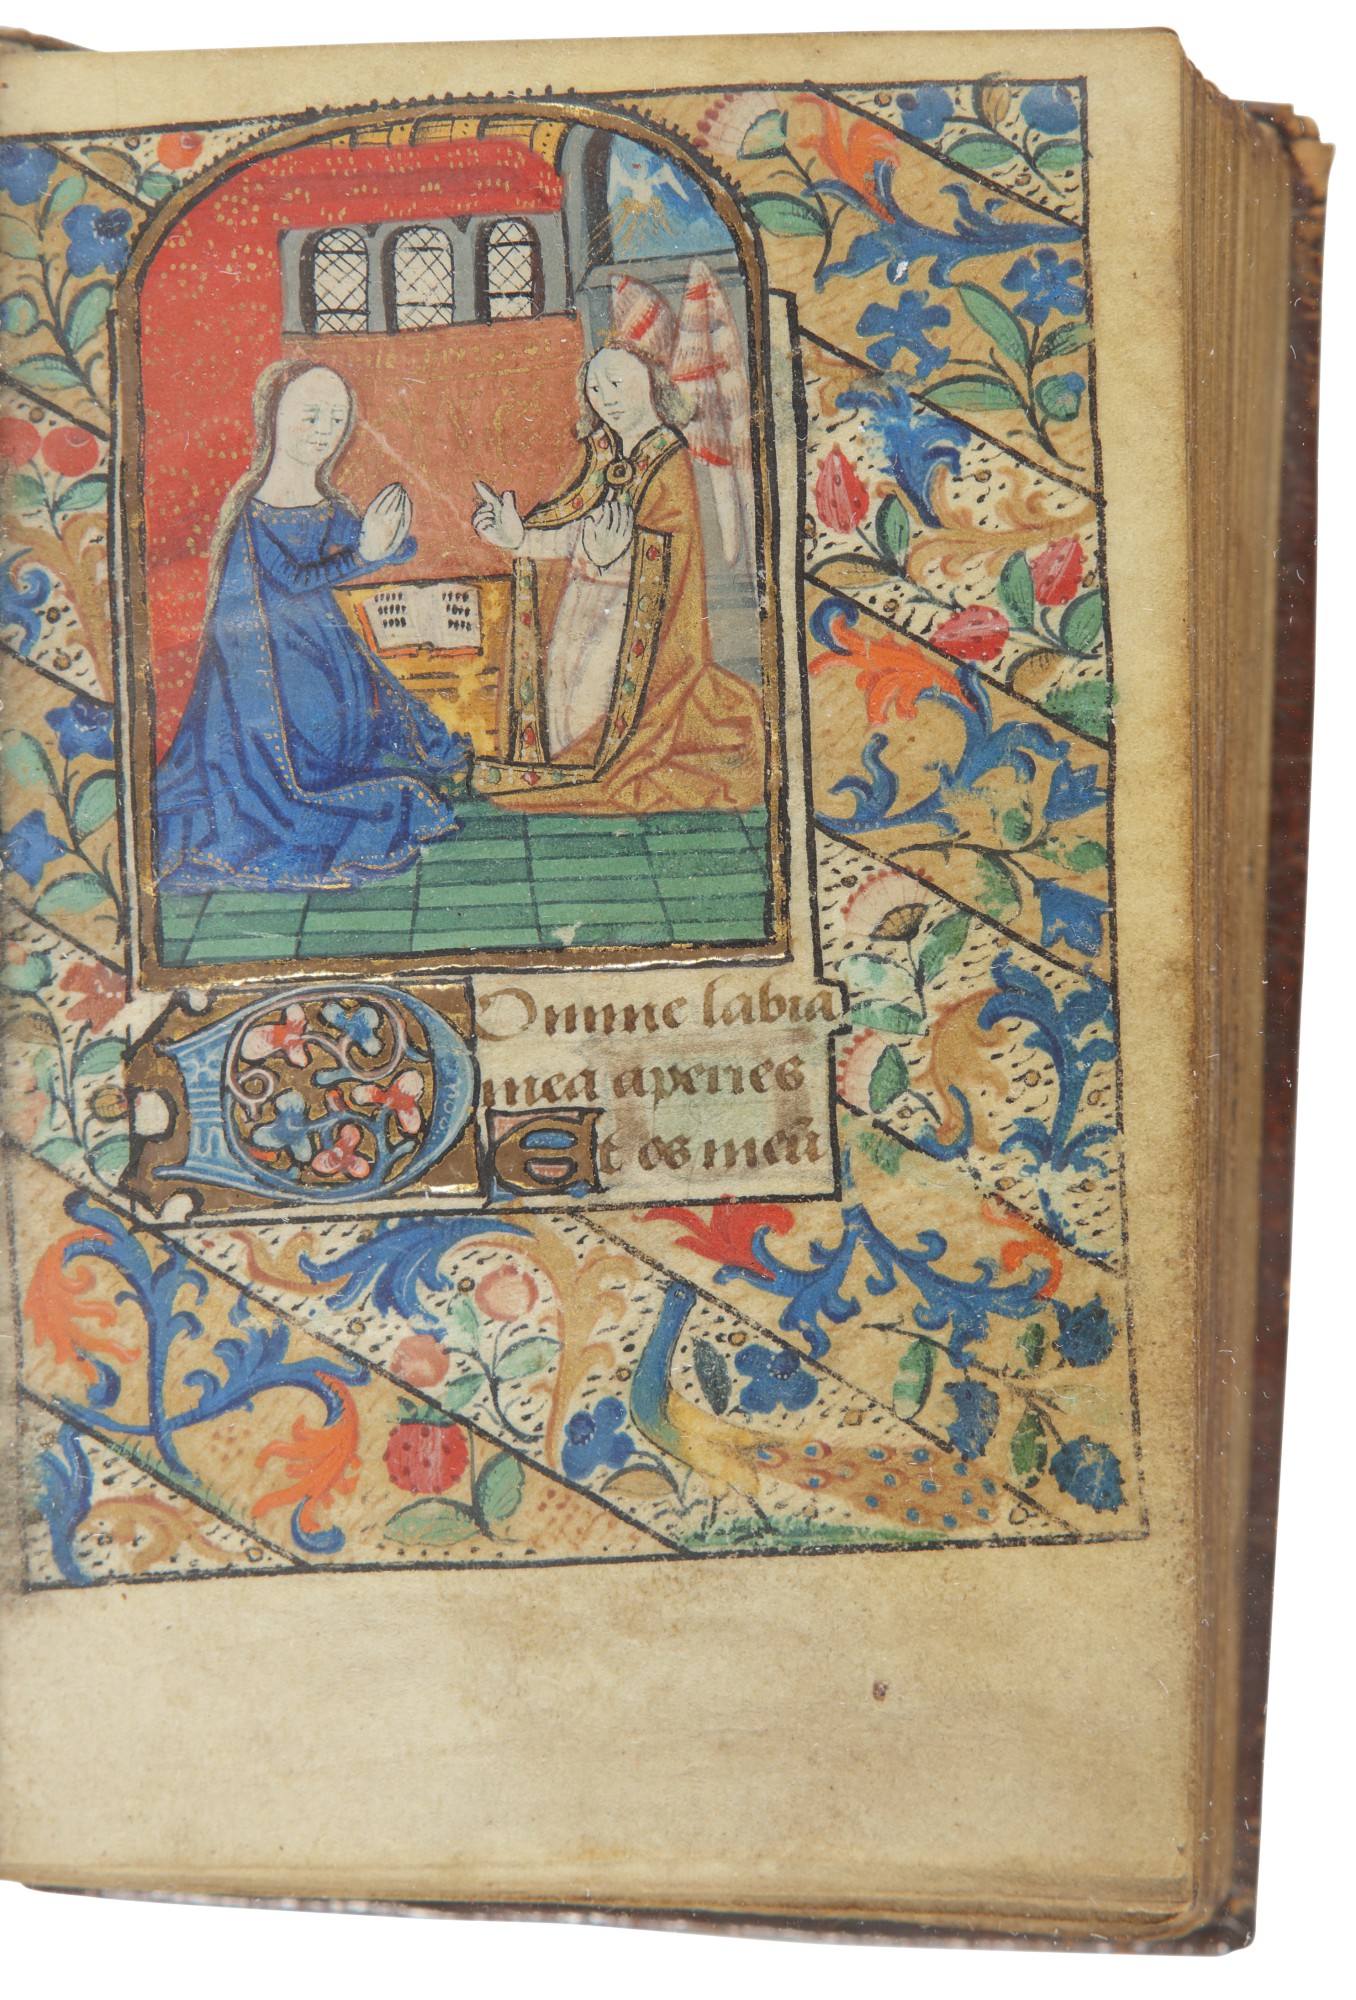 DOmine labia
mea aperies
Et os meū